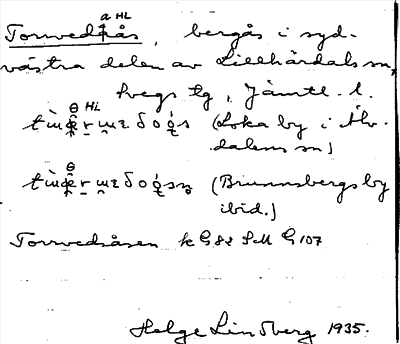 a HL
Torrvedåås, bergås i syd-
västra delen av Lillhärdals sn,
Svegs tg, Jämtl. l.
(Loka by i Älv-
dalens sn)
(Brunnsbergs by
ibid.)
Torrvedåsen k G 82 SM G 107
Helge Lindberg 1935.